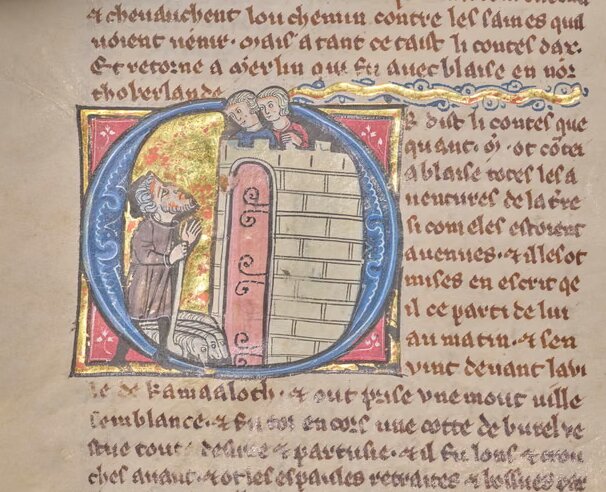 & cheuauchent lou chemin contre les saines quil
uoient uenir. Mais a tant ce taist li contes dax.
Et retorne a Merlin qui fu auec blaise en nor
thoberlande
R dist li contes que
quant. M. ot cōtei
a blaise totes les a
uentures de la t're
si com eles estoient
auenues. & il les ot
mises en escrit qe
il ce parti de lui
au matin. & sen
uint deuant la ui
le de Kamaaloth. & out prise vne mout uille
semblance. & fu encors une cotte de burel ve
stue toute desiree & partusie. & il fu lons & crou
ches auant. & ot les espaules retraites & bossues par